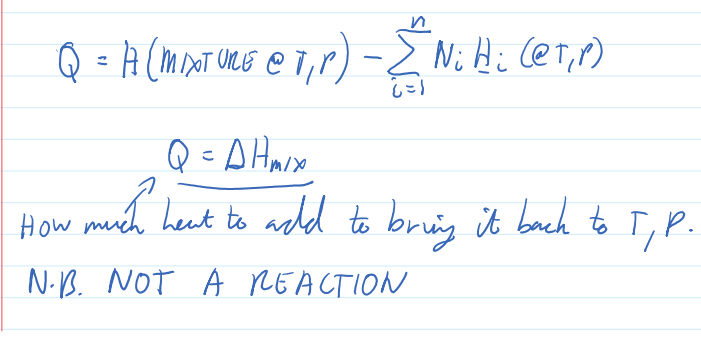 Q = H(MIXTURE @ T,P) - \sum_{i=1}^{n} N_i \underline{H}_i (@T,P)
Q = ΔH_{mix}
How much heat to add to bring it back to T, P.
N.B. NOT A REACTION